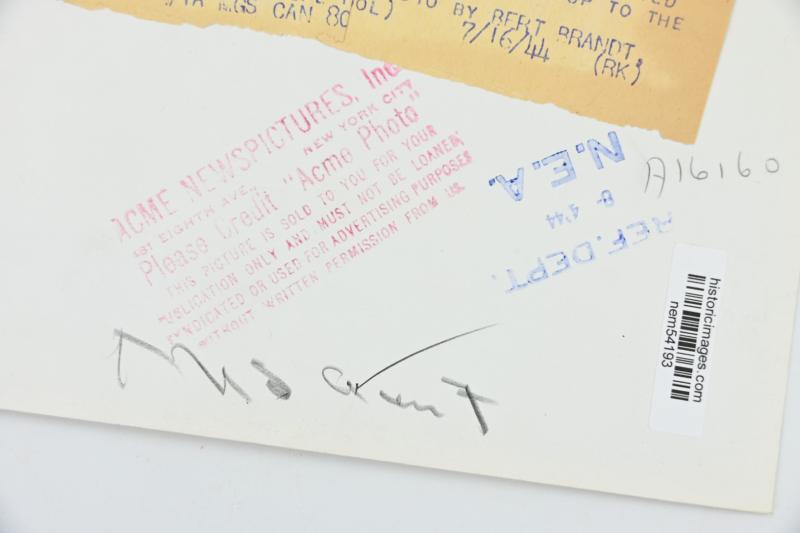 UP TO THE
MGS CAN 80
BY BERT BRANDT,
7/16/44 (RK)
ACME NEWSPICTURES, Inc
EIGHTH AVE. NEW YORK CITY
Please Credit "Acme Photo"
THIS PICTURE IS SOLD TO YOU FOR YOUR
PUBLICATION ONLY AND MUST NOT BE LOANED,
SYNDICATED OR USED FOR ADVERTISING PURPOSES
WITHOUT WRITTEN PERMISSION FROM US
N.E.A.
8-4'44
REF. DEPT.
A16160
historicimages.com
nem54193